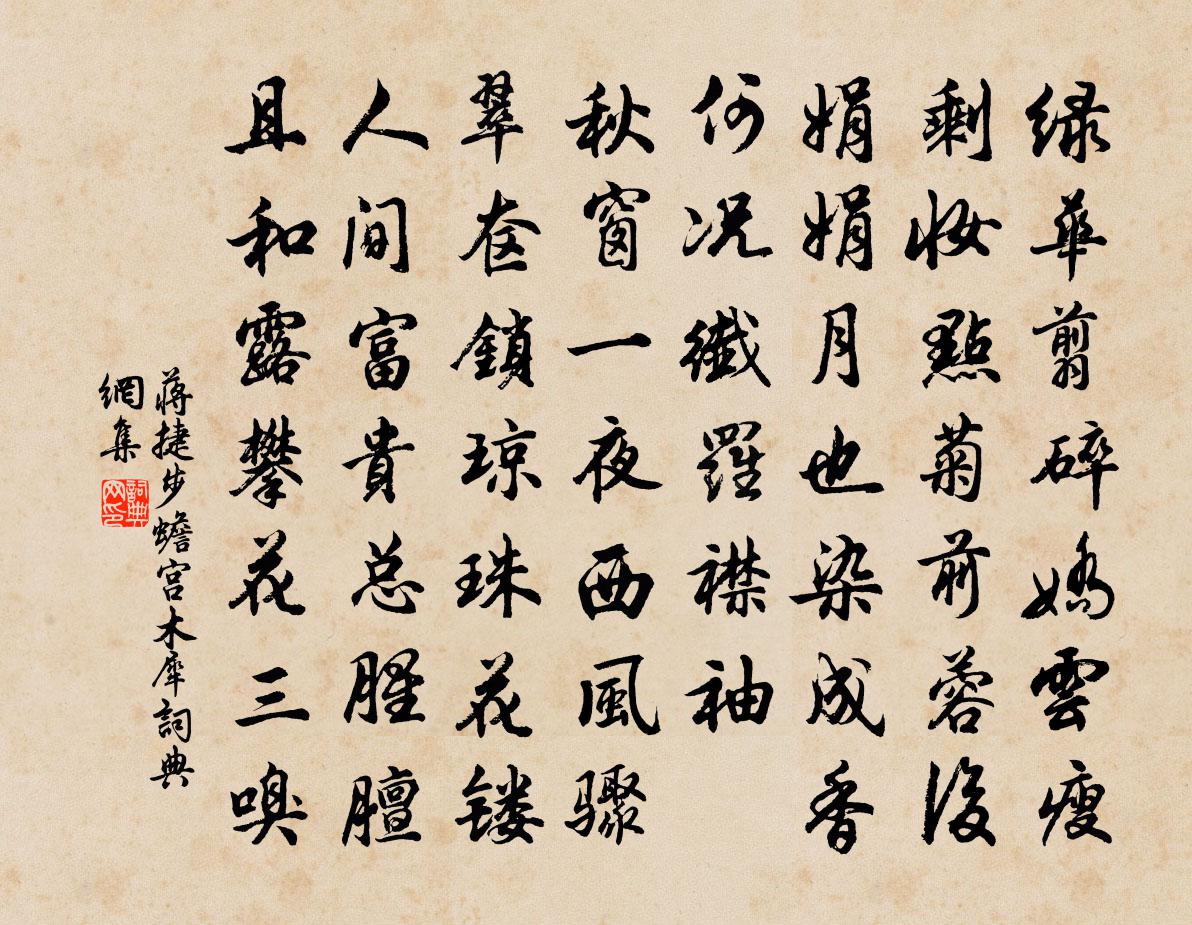 绿華翦碎嬌雲瘦
剩妝點菊前蓉後
娟娟月也染成香
何况纖羅襟袖
秋窗一夜西風驟
翠奁鎖琼珠花镂
人間富貴总腥膻
且和露攀花三嗅
蒋捷步蟾宫木犀詞典
網集
詞典
网印